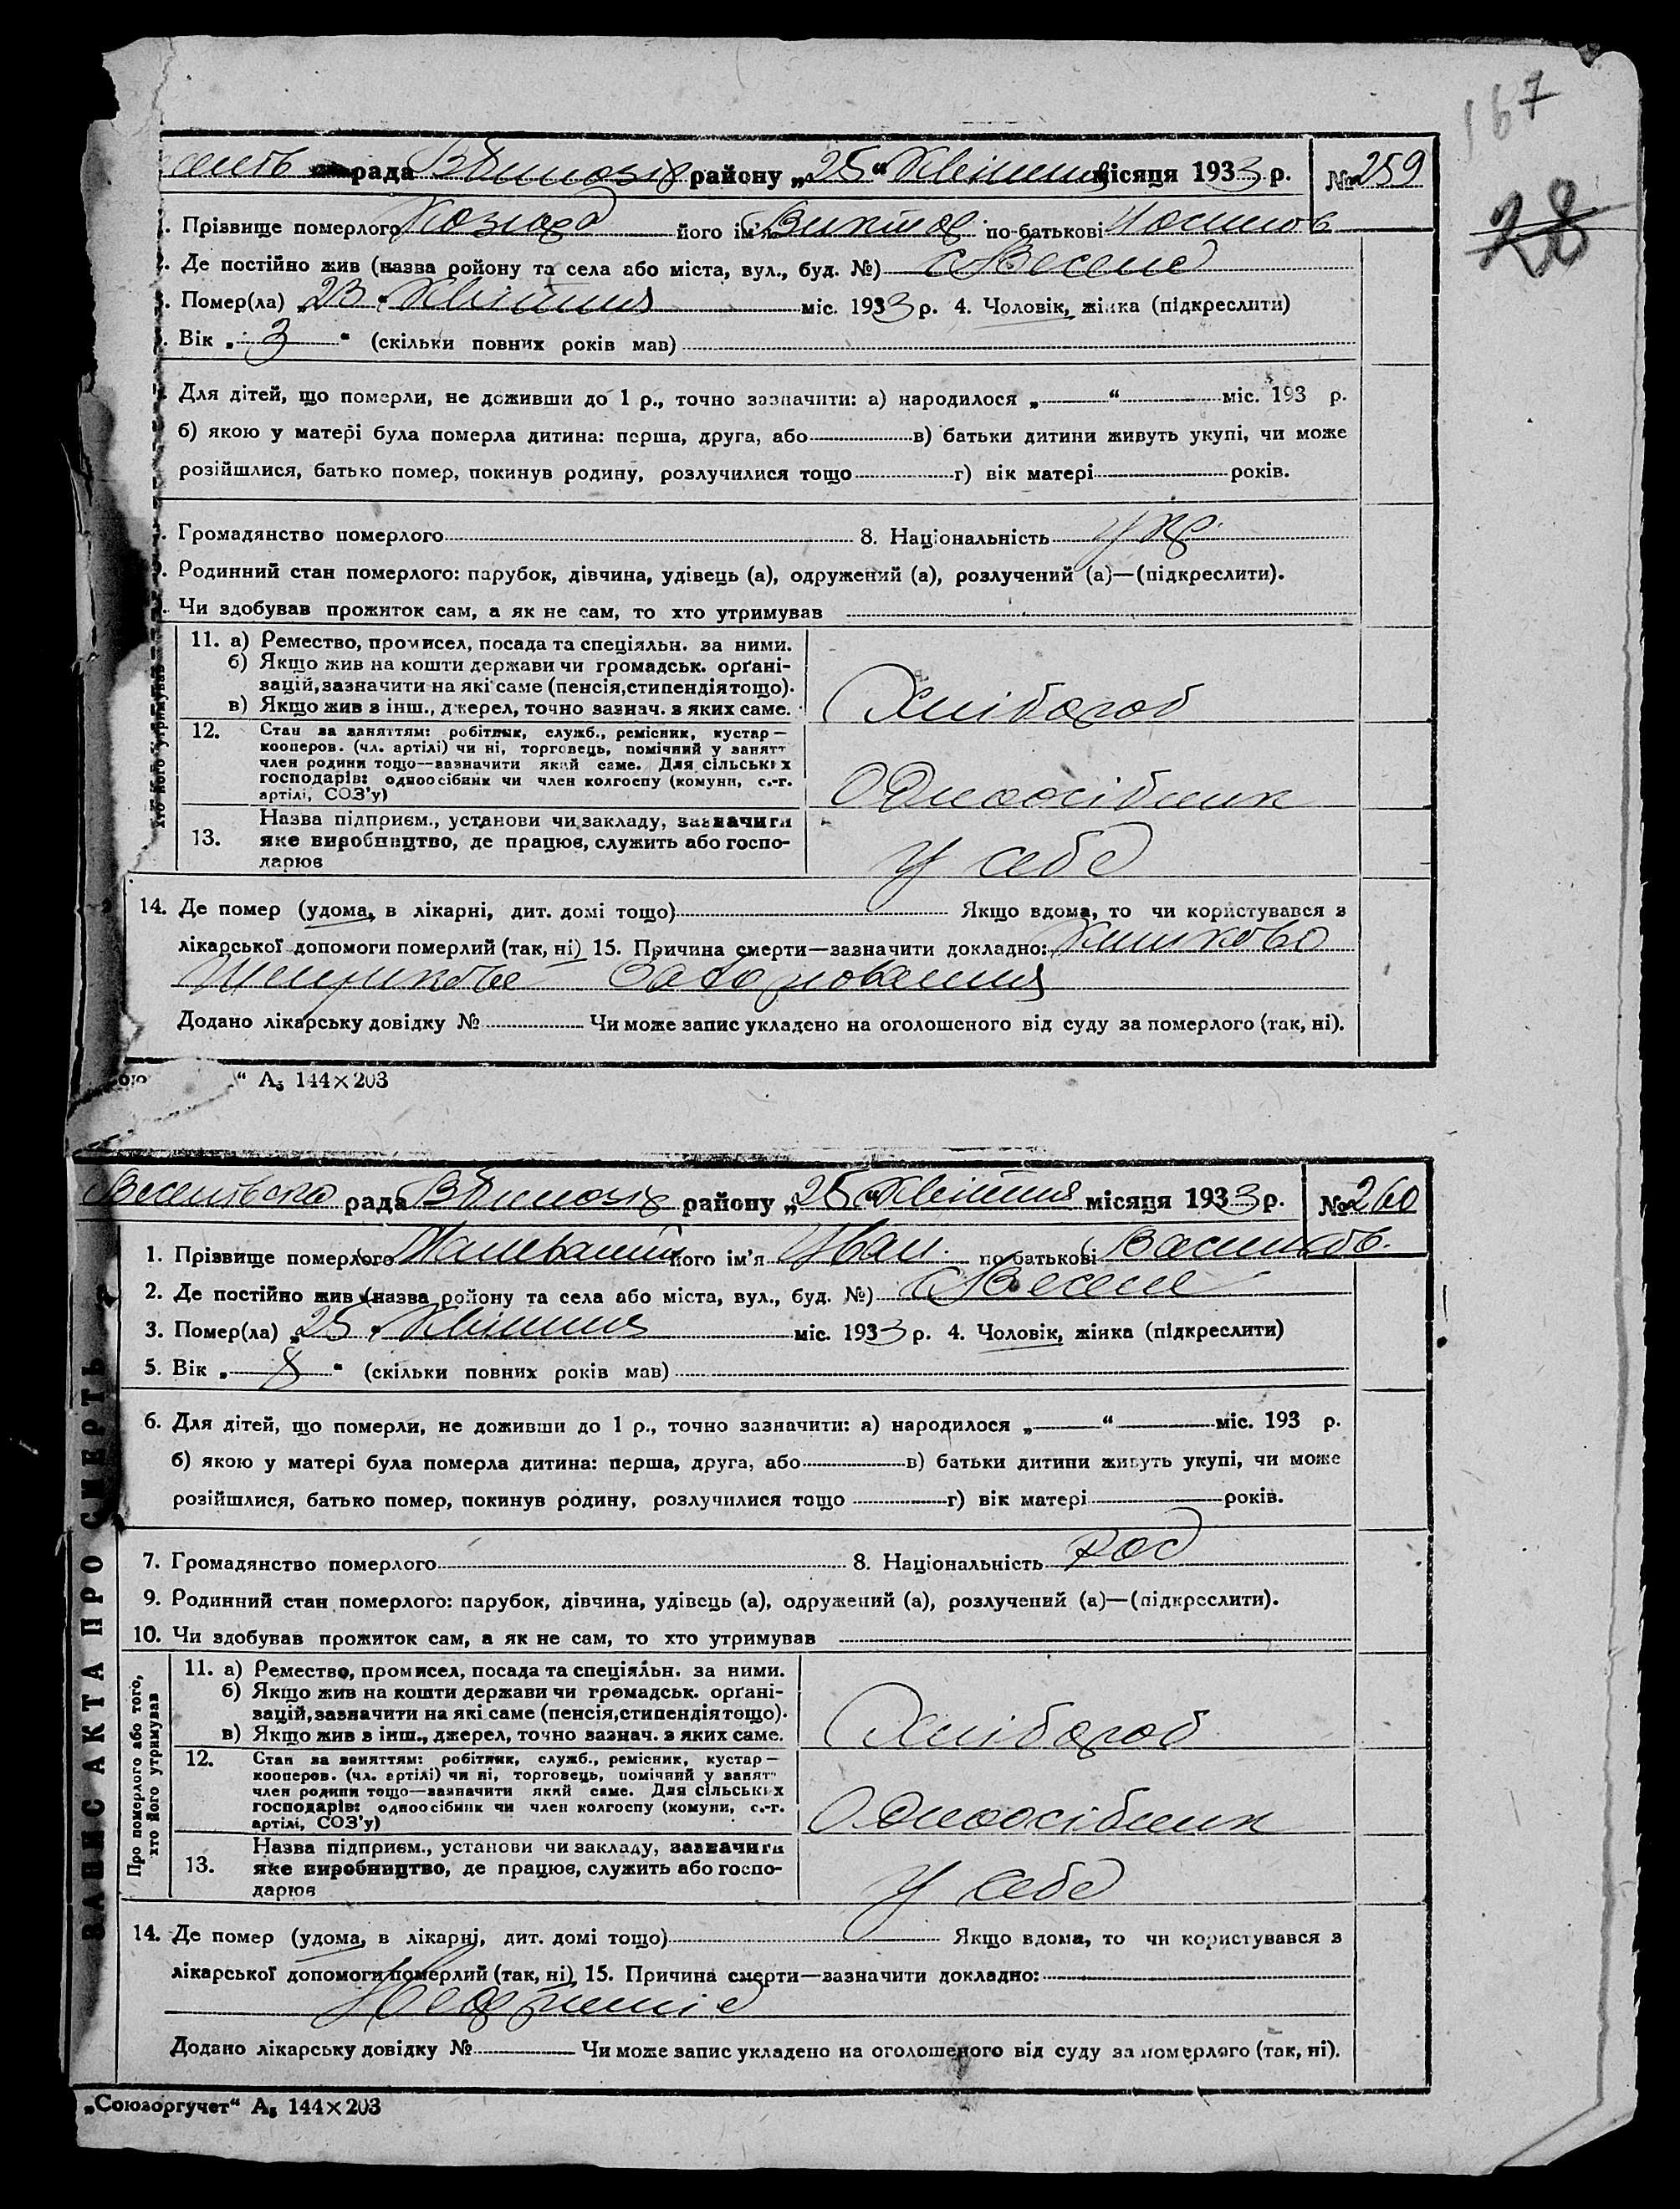 167
28
рада району „25“ Квітня місяця 1933 р. № 259
Прізвище померлого його ім'я Виктор по-батькові
Де постійно жив (назва ройону та села або міста, вул., буд. №) с Веселе
Помер(ла) „23“ Квітня міс. 1933 р. 4. Чоловік, жінка (підкреслити)
Вік „3“ (скільки повних років мав)
Для дітей, що померли, не доживши до 1 р., точно зазначити: а) народилося „ “ міс. 193 р.
б) якою у матері була померла дитина: перша, друга, або в) батьки дитини живуть укупі, чи може
розійшлися, батько помер, покинув родину, розлучилися тощо г) вік матері років.
Громадянство померлого 8. Національність укр.
Родинний стан померлого: парубок, дівчина, удівець (а), одружений (а), розлучений (а)—(підкреслити).
Чи здобував прожиток сам, а як не сам, то хто утримував
хто його утримував
11. а) Ремество, промисел, посада та спеціяльн. за ними.
б) Якщо жив на кошти держави чи громадськ. органі-
зацій, зазначити на які саме (пенсія, стипендія тощо).
в) Якщо жив з інш., джерел, точно зазнач. з яких саме. Хлібороб
12. Стан за заняттям: робітник, служб., ремісник, кустар—
кооперов. (чл. артілі) чи ні, торговець, помічний у занятт
член родини тощо—зазначити який саме. Для сільських
господарів: одноосібник чи член колгоспу (комуни, с.-г.
артілі, СОЗ'у) Одноосібник
Назва підприєм., установи чи закладу, зазначити
13. яке виробництво, де працює, служить або госпо-
дарює у себе
14. Де помер (удома, в лікарні, дит. домі тощо) Якщо вдома, то чи користувався з
лікарської допомоги померлий (так, ні) 15. Причина смерти—зазначити докладно: Кишково
Шлункове
Додано лікарську довідку № Чи може запис укладено на оголошеного від суду за померлого (так, ні).
“ А₅ 144×203
Веселівська рада району „25“ Квітня місяця 1933 р. № 260
1. Прізвище померлого його ім'я Іван по батькові Васильов.
2. Де постійно жив (назва ройону та села або міста, вул., буд. №) с Веселе
3. Помер(ла) „25“ Квітня міс. 1933 р. 4. Чоловік, жінка (підкреслити)
5. Вік „ “ (скільки повних років мав)
6. Для дітей, що померли, не доживши до 1 р., точно зазначити: а) народилося „ “ міс. 193 р.
б) якою у матері була померла дитина: перша, друга, або в) батьки дитини живуть укупі, чи може
розійшлися, батько помер, покинув родину, розлучилися тощо г) вік матері років.
7. Громадянство померлого 8. Національність рос
9. Родинний стан померлого: парубок, дівчина, удівець (а), одружений (а), розлучений (а)—(підкреслити).
10. Чи здобував прожиток сам, а як не сам, то хто утримував
ЗАПИС АКТА ПРО СМЕРТЬ
Про померлого або того,
хто його утримував
11. а) Ремество, промисел, посада та спеціяльн. за ними.
б) Якщо жив на кошти держави чи громадськ. органі-
зацій, зазначити на які саме (пенсія, стипендія тощо).
в) Якщо жив з інш., джерел, точно зазнач. з яких саме. Хлібороб
12. Стан за заняттям: робітник, служб., ремісник, кустар—
кооперов. (чл. артілі) чи ні, торговець, помічний у занятт
член родини тощо—зазначити який саме. Для сільських
господарів: одноосібник чи член колгоспу (комуни, с.-г.
артілі, СОЗ'у) Одноосібник
Назва підприєм., установи чи закладу, зазначити
13. яке виробництво, де працює, служить або госпо-
дарює у себе
14. Де помер (удома, в лікарні, дит. домі тощо) Якщо вдома, то чи користувався з
лікарської допомоги померлий (так, ні) 15. Причина смерти—зазначити докладно:
Додано лікарську довідку № Чи може запис укладено на оголошеного від суду за померлого (так, ні).
„Союзоргучет“ А₅ 144×203